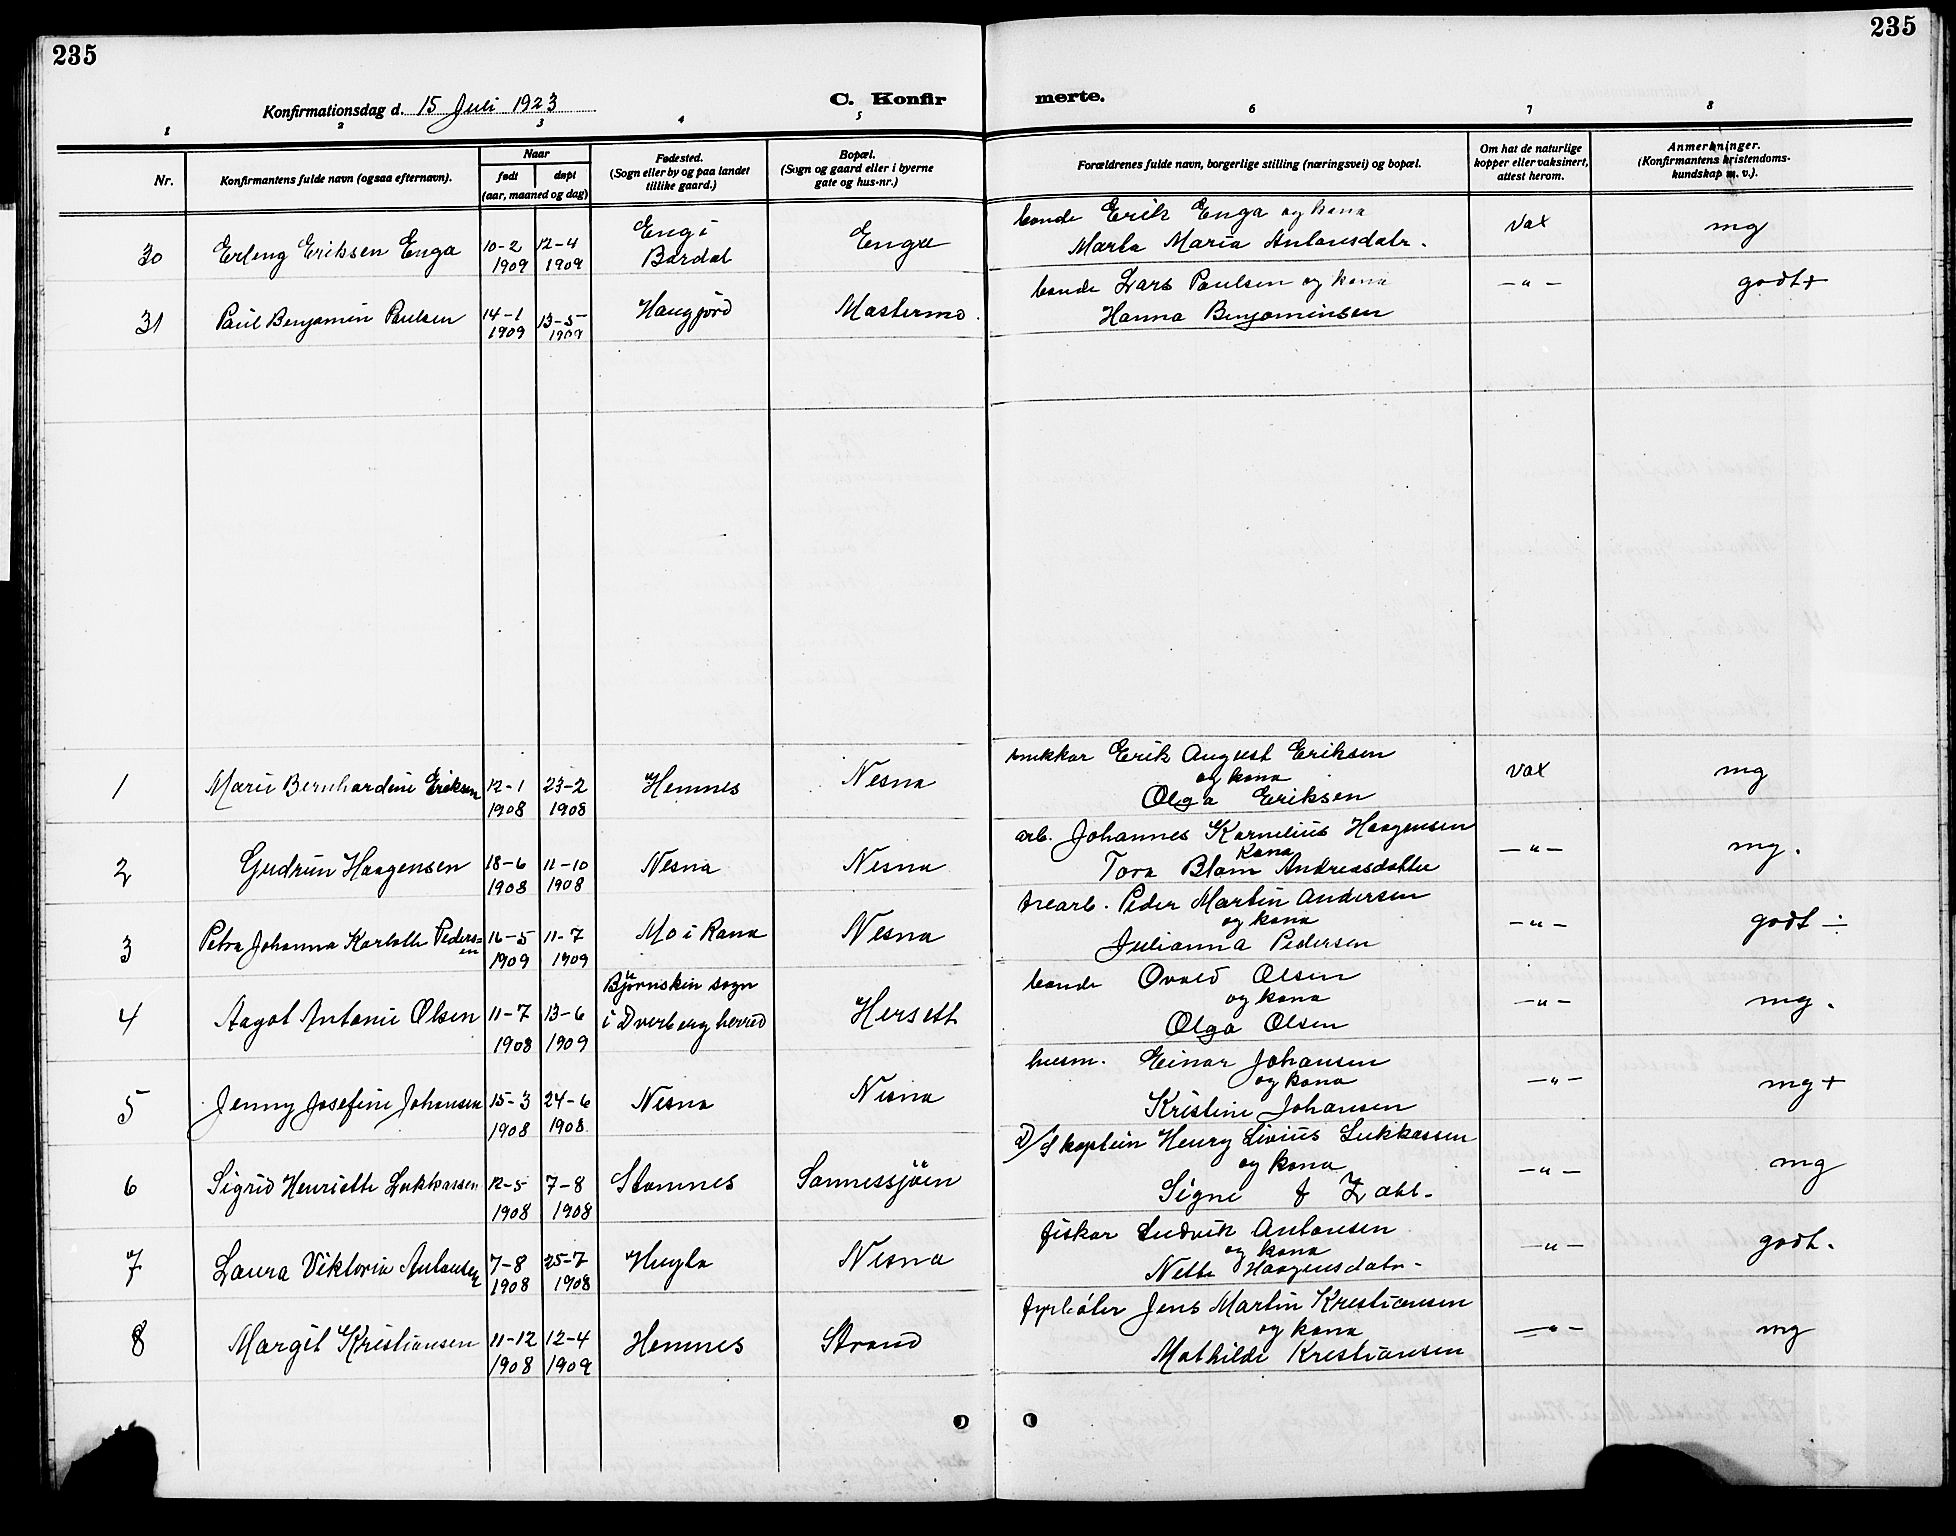 235
235
Konfirmationsdag d. 15 Juli 1923
C. Konfir
merte.
1 2 3 4 5 6 7 8
Nr.
Konfirmantens fulde navn (ogsaa efternavn).
Naar
født
døpt
(aar, maaned og dag)
Fødested.
(Sogn eller by og paa landet
tillike gaard.)
Bopæl.
(Sogn og gaard eller i byerne
gate og hus-nr.)
Forældrenes fulde navn, borgerlige stilling (næringsvei) og bopæl.
Om hat de naturlige
kopper eller vaksinert,
attest herom.
Anmerkninger.
(Konfirmantens kristendoms-
kundskap m. v.).
30 Erling Eriksen Enga 10-2 1909 12-4 1909 Eng i Bardal Enga
bonde Erik Enga og kona
Marta Maria Antonsdatr.
vax mg
31 Paul Benjamin Paulsen 14-1 1909 13-5- 1909 Haugjord Mastermo.
bonde Lars Paulsen og kona
Hanna Benjaminsen
-"- godt+
1 Marie Bernhardine Eriksen 12-1 1908 23-2 1908 Hemnes Nesna
snikkar Erik August Eriksen
og kona
Olga Eriksen
vax mg
2 Gudrun Haagensen 18-6 1908 11-10 1908 Nesna Nesna
arb. Johannes Kornelius Haagensen
Kona
Tora Blom Andreasdatter
-"- mg.
3 Petra Johanna Karlotte Peders=en 16-5 1909 11-7 1909 Mo i Rana Nesna
trearb. Peder Martin Andersen
og kona
Julianna Pedersen
-"- godt ÷
4 Aagot Antonie Olsen 11-7 1908 13-6 1909 Bjørnskin sogn
i Dverberg herred Hersett
bonde Ovald Olsen
og kona
Olga Olsen
-"- mg.
5 Jenny Josefine Johansen 15-3 1908 24-6 1908. Nesna Nesna
husm. Einar Johansen
og kona
Kristine Johansen
-"- mg+
6 Sigrid Henriette Lukkassen 12-5 1908 7-8 1908 Stamnes Sannessjöen
D/S kaptein Henry Livius Lukkassen
og kona
Signe f Zahl-
-"- mg
7 Laura Viktoria Antonsen 7-8 1908 25-7 1908 Hugla Nesna
fiskar Ludvik Antonsen
og kona
Nette Haagensdatr-
-"- godt.
8 Margit Kristiansen 11-12 1908 12-4 1909 Hemnes Strand
Jens Martin Kristiansen
og kona
Mathilde Kristiansen
-"- mg